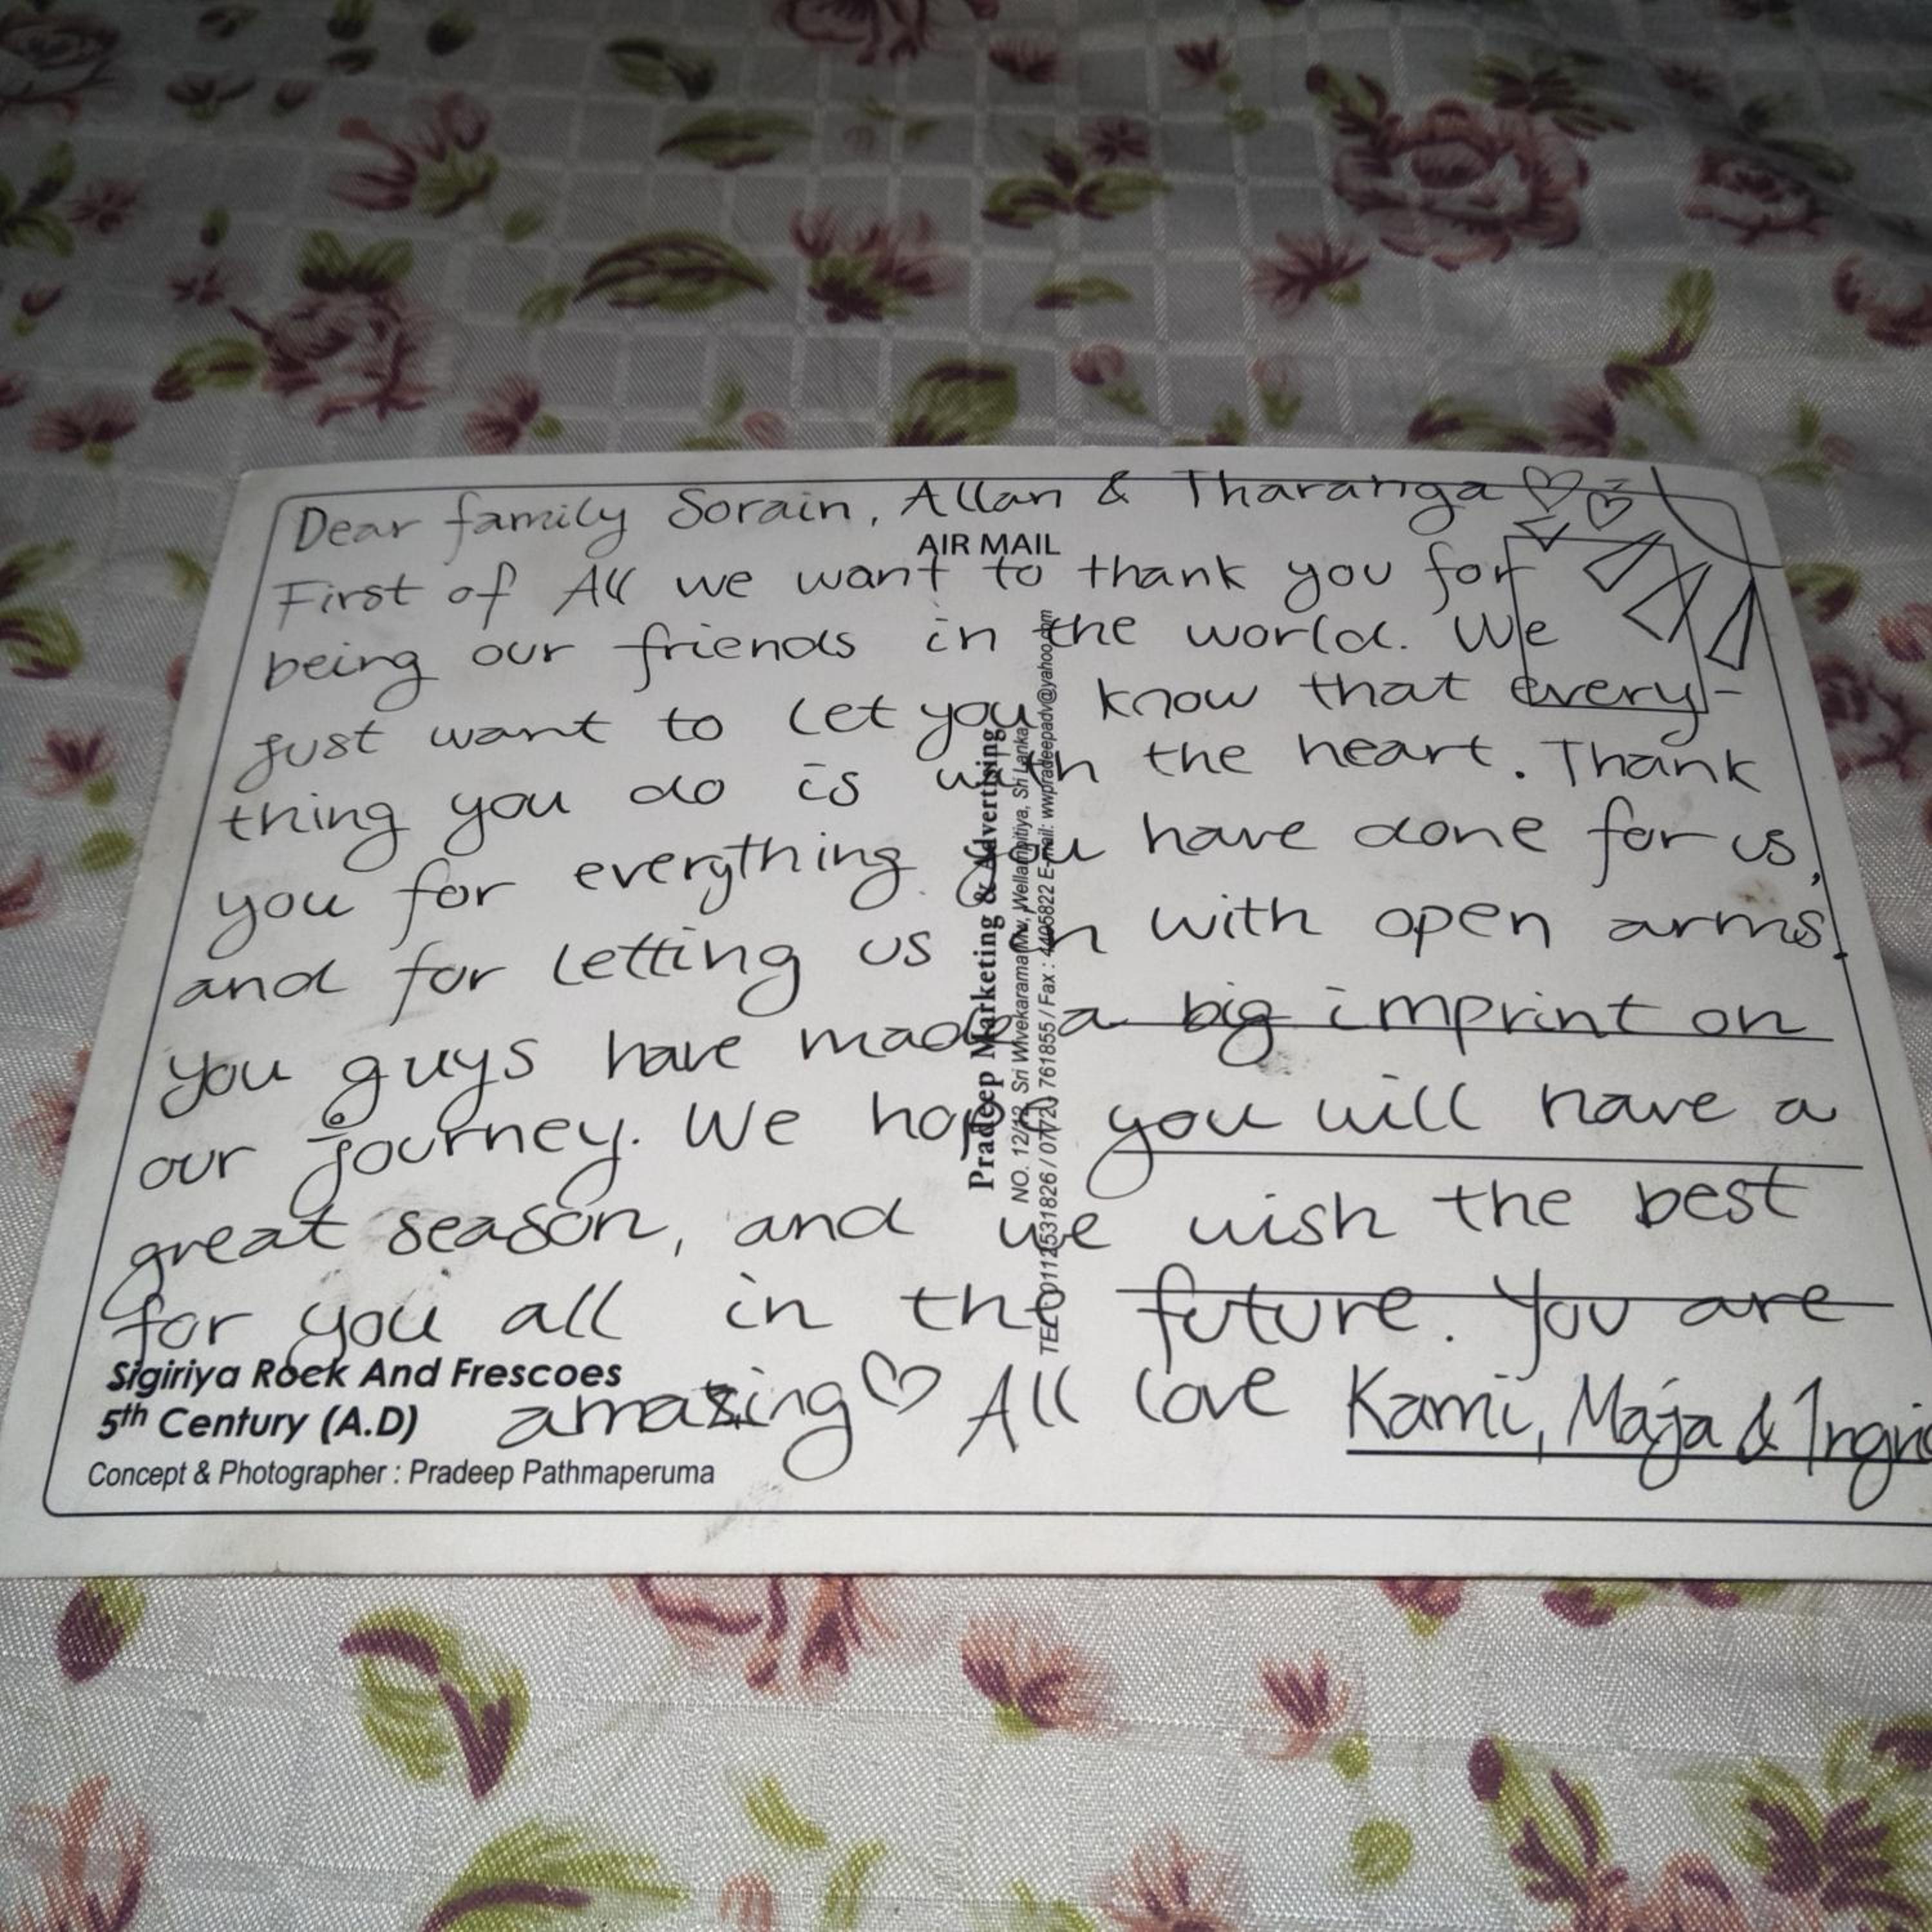 Dear family Sorain, Allan & Tharanga ♡♡
AIR MAIL
First of All we want to thank you for
being our friends in the world. We
just want to let you know that every-
thing you do is with the heart. Thank
you for everything you have done for us,
and for letting us in with open arms.
you guys have made a big imprint on
our journey. We hope you will have a
great season, and we wish the best
for you all in the future. You are
amazing ♡ All love Kami, Maja &
Sigiriya Rock And Frescoes
5th Century (A.D)
Concept & Photographer : Pradeep Pathmaperuma
Pradeep Marketing & Advertising
NO. 12/12, Sri Wivekarama Mw, Wellampitiya, Sri Lanka
TEL: 0112531826 / 0772 761855 / Fax : 4405822 E-mail: wwpradeepadv@yahoo.com